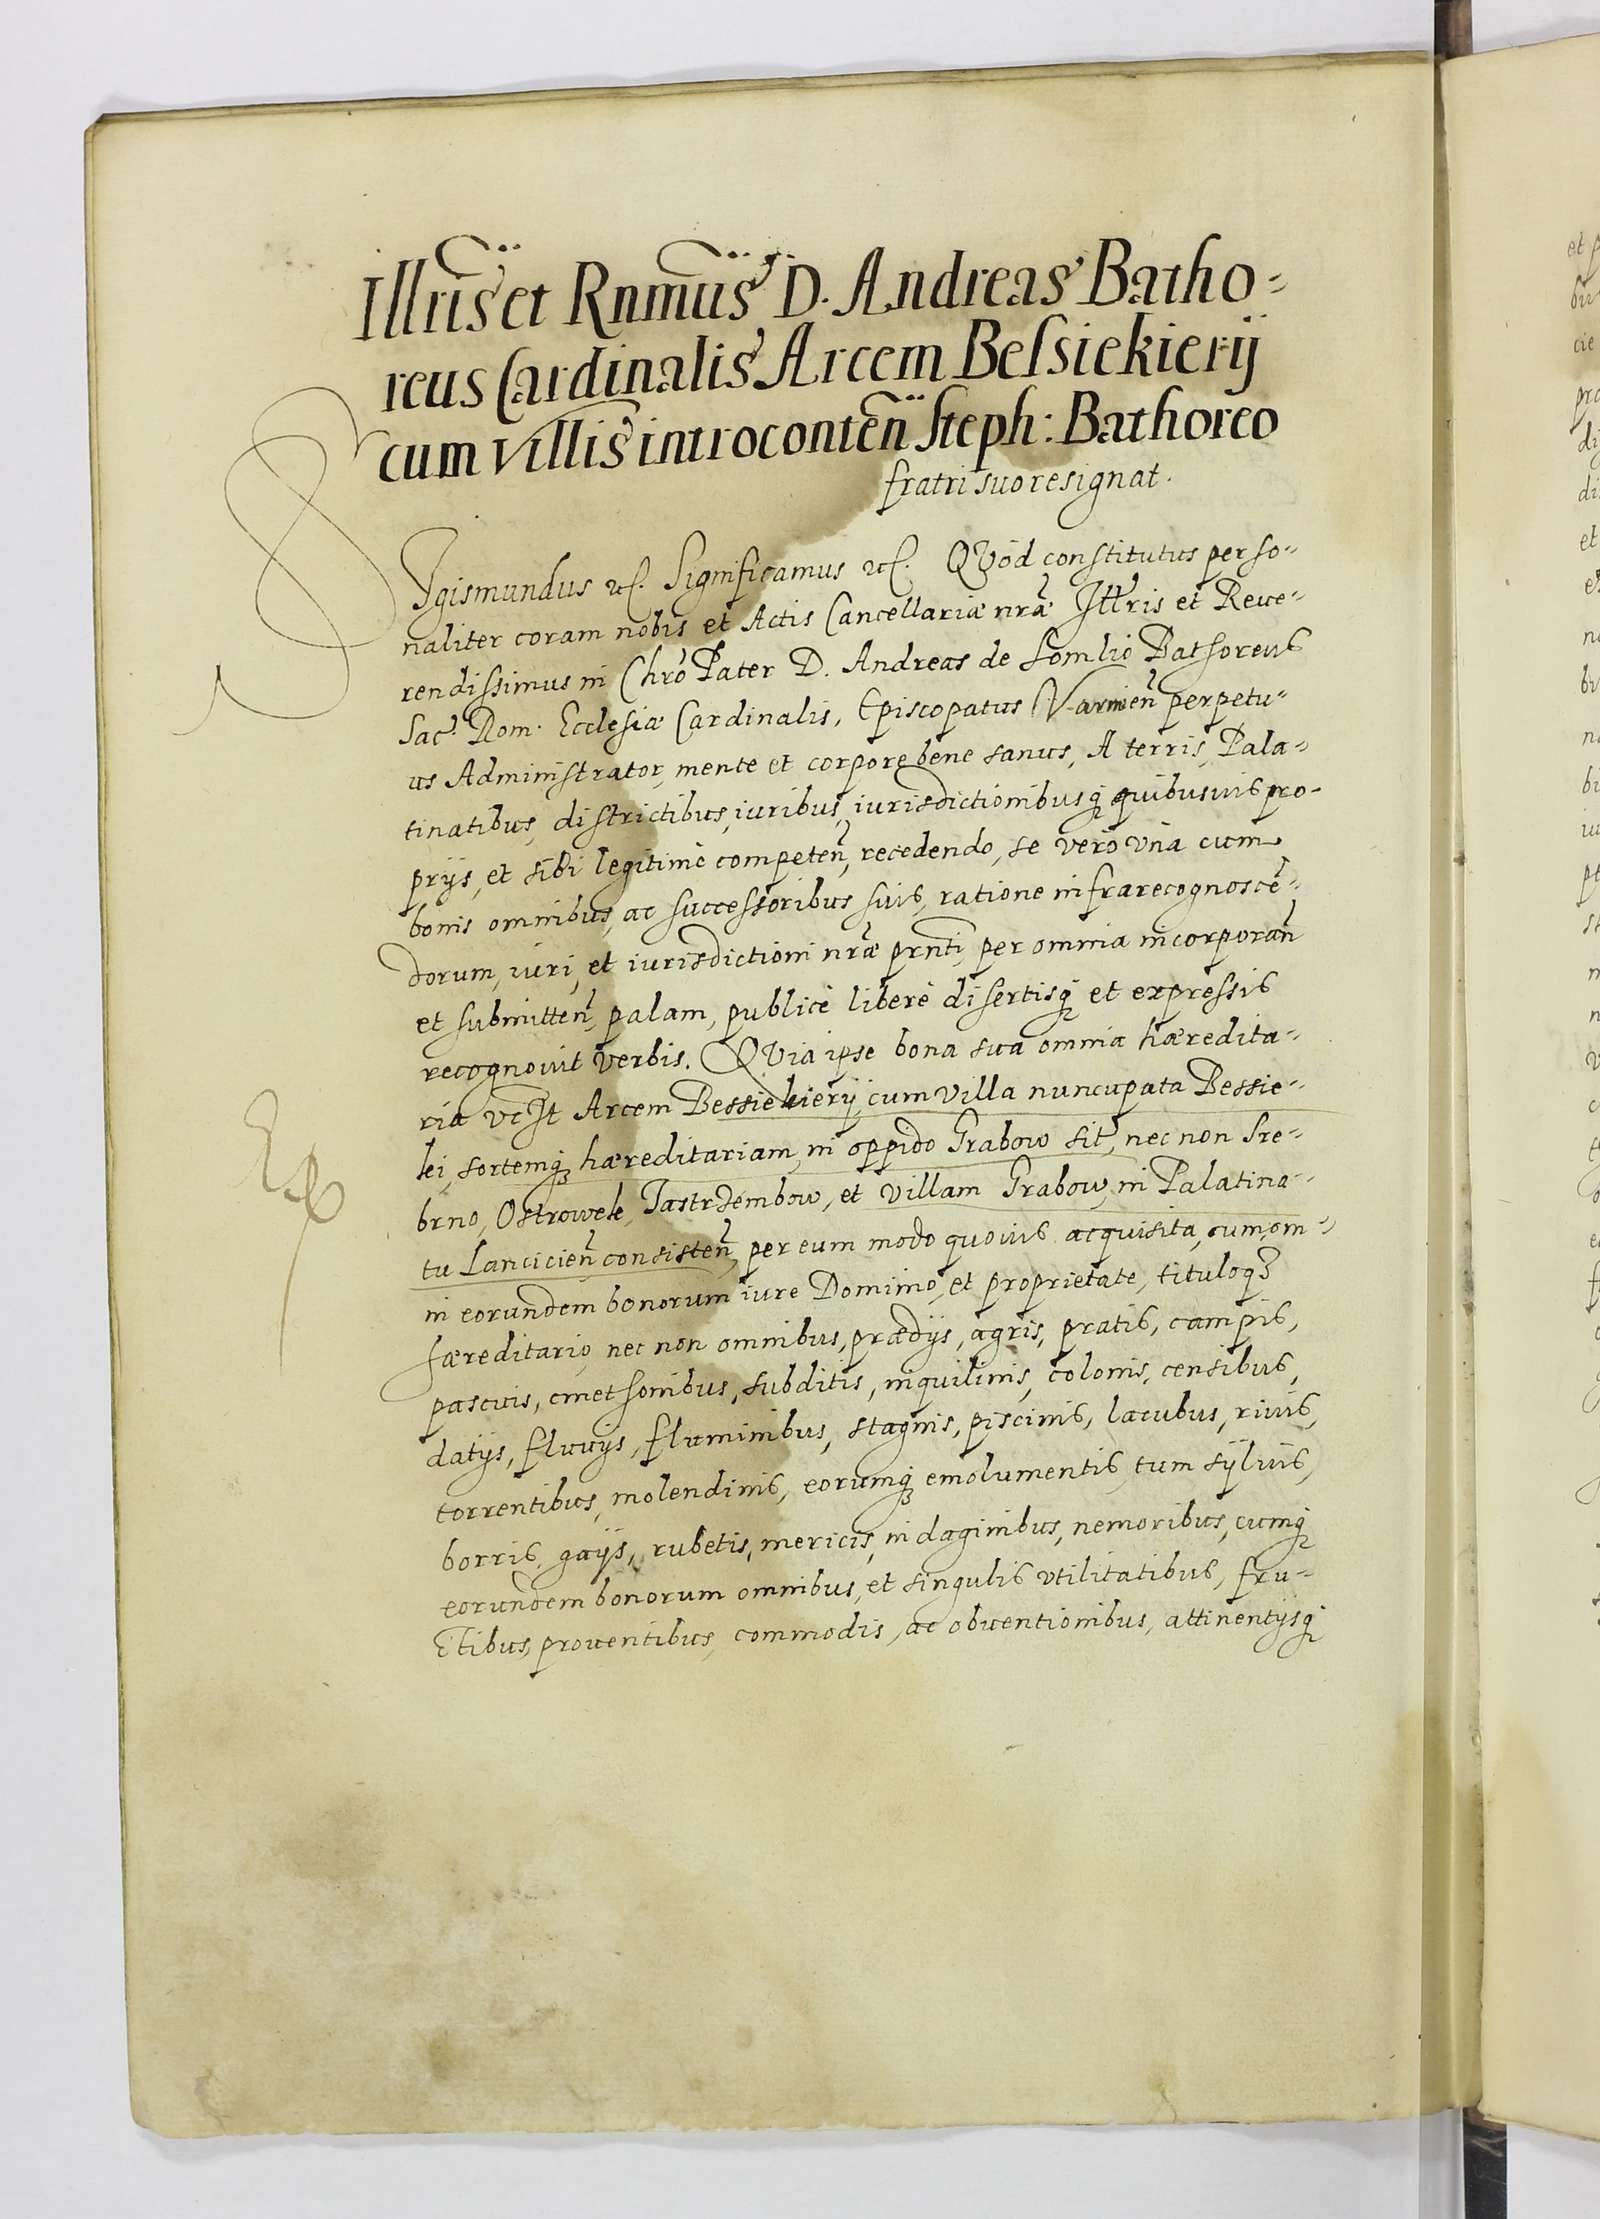 Illris et Rnmus D. Andreas Batho-
reus Cardinalis Arcem Besiekierij
cum villis introconten Steph: Bathoreo
fratri suo resignat.
Sigismundus etc. Significamus etc. QVod constitutus perso-
naliter coram nobis et Actis Cancellariæ nræ Illris et Reue-
rendissimus in Chro Pater D. Andreas de Somlio Bathoreus
Sac. Rom. Ecclesiæ Cardinalis, Episcopatus Varmien perpetu-
us Administrator, mente et corpore bene sanus, A terris, Pala-
tinatibus, districtibus, iuribus, iurisdictionibusq quibusuis pro-
prijs, et sibi legitimè competen, recedendo, se verò vnà cum
bonis omnibus, ac successoribus suis, ratione infrarecognoscē-
dorum, iuri, et iurisdictioni nræ prnti, per omnia incorporan
et submitten, palam, publicè liberè disertisq et expressis
recognouit verbis. QVia ipse bona sua omnia hæredita-
ria vt st Arcem Bessiekierij cum villa nuncupata Bessie-
kei, sortemq hæreditariam, in oppido Grabow sit, nec non Sre-
brno, Ostrowek, Jastrzembow, et villam Grabow, in Palatina-
tu Lancicien consisten, per eum modo quouis acquisita, cum om-
ni eorundem bonorum iure Dominio, et proprietate, tituloq3
hæreditario, nec non omnibus, prædijs, agris, pratis, campis,
pascuis, cmethonibus, subditis, inquilinis, colonis, censibus,
datijs, fluuijs, fluminibus, stagnis, piscinis, lacubus, riuis,
torrentibus, molendinis, eorumq emolumentis, tum syluis,
borris, gaijs, rubetis, mericis, indaginibus, nemoribus, cumq
eorundem bonorum omnibus, et singulis vtilitatibus, fru-
ctibus, prouentibus, commodis, ac obuentionibus, attinentijsq